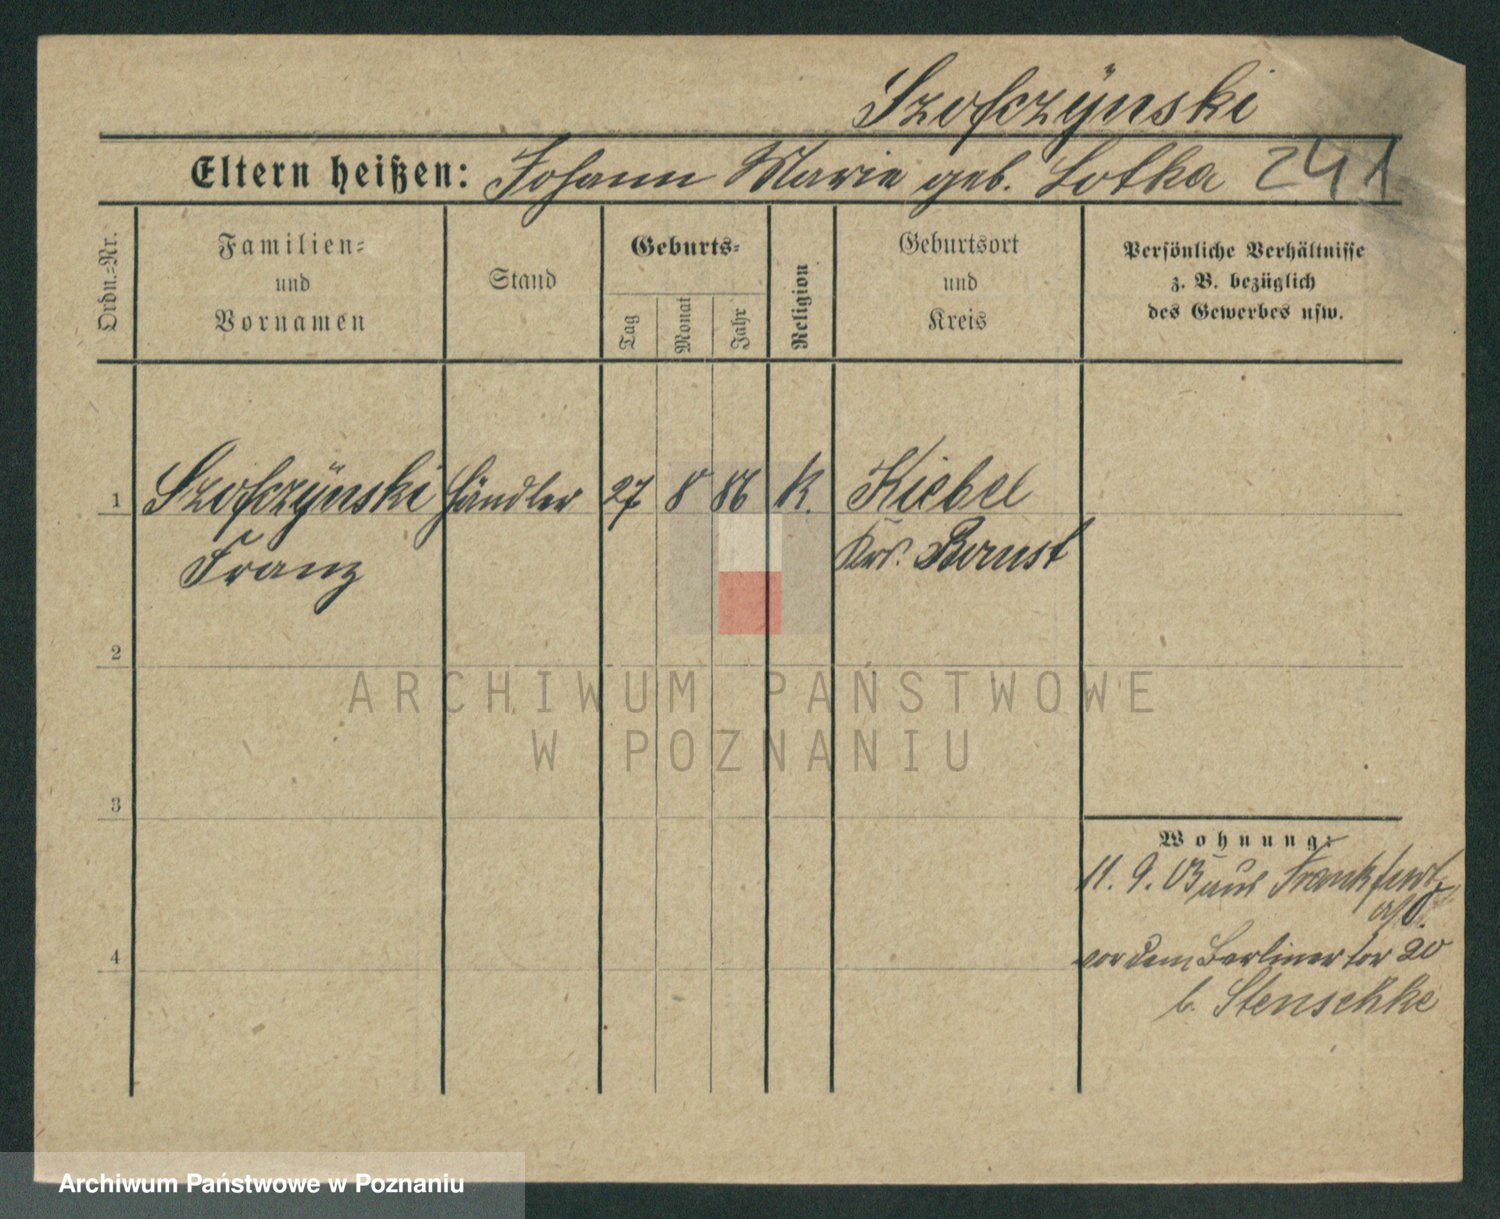 Szofczÿnski
Eltern heißen: Johann Marie geb. Lotka 241
Ordn.=Nr.
Familien=
und
Vornamen
Stand
Geburts=
Tag
Monat
Jahr
Religion
Geburtsort
und
Kreis
Persönliche Verhältnisse
z. B. bezüglich
des Gewerbes usw.
1 Szofczÿnski Händler 27 8 86 K. Kiebel
Franz Krs. Bomst
2
ARCHIWUM PAŃSTWOWE
W POZNANIU
3
Wohnung:
11. 9. 03 aus Frankfurt
a/O.
4 vor dem Berliner tor 20
b. Stenschke
Archiwum Państwowe w Poznaniu